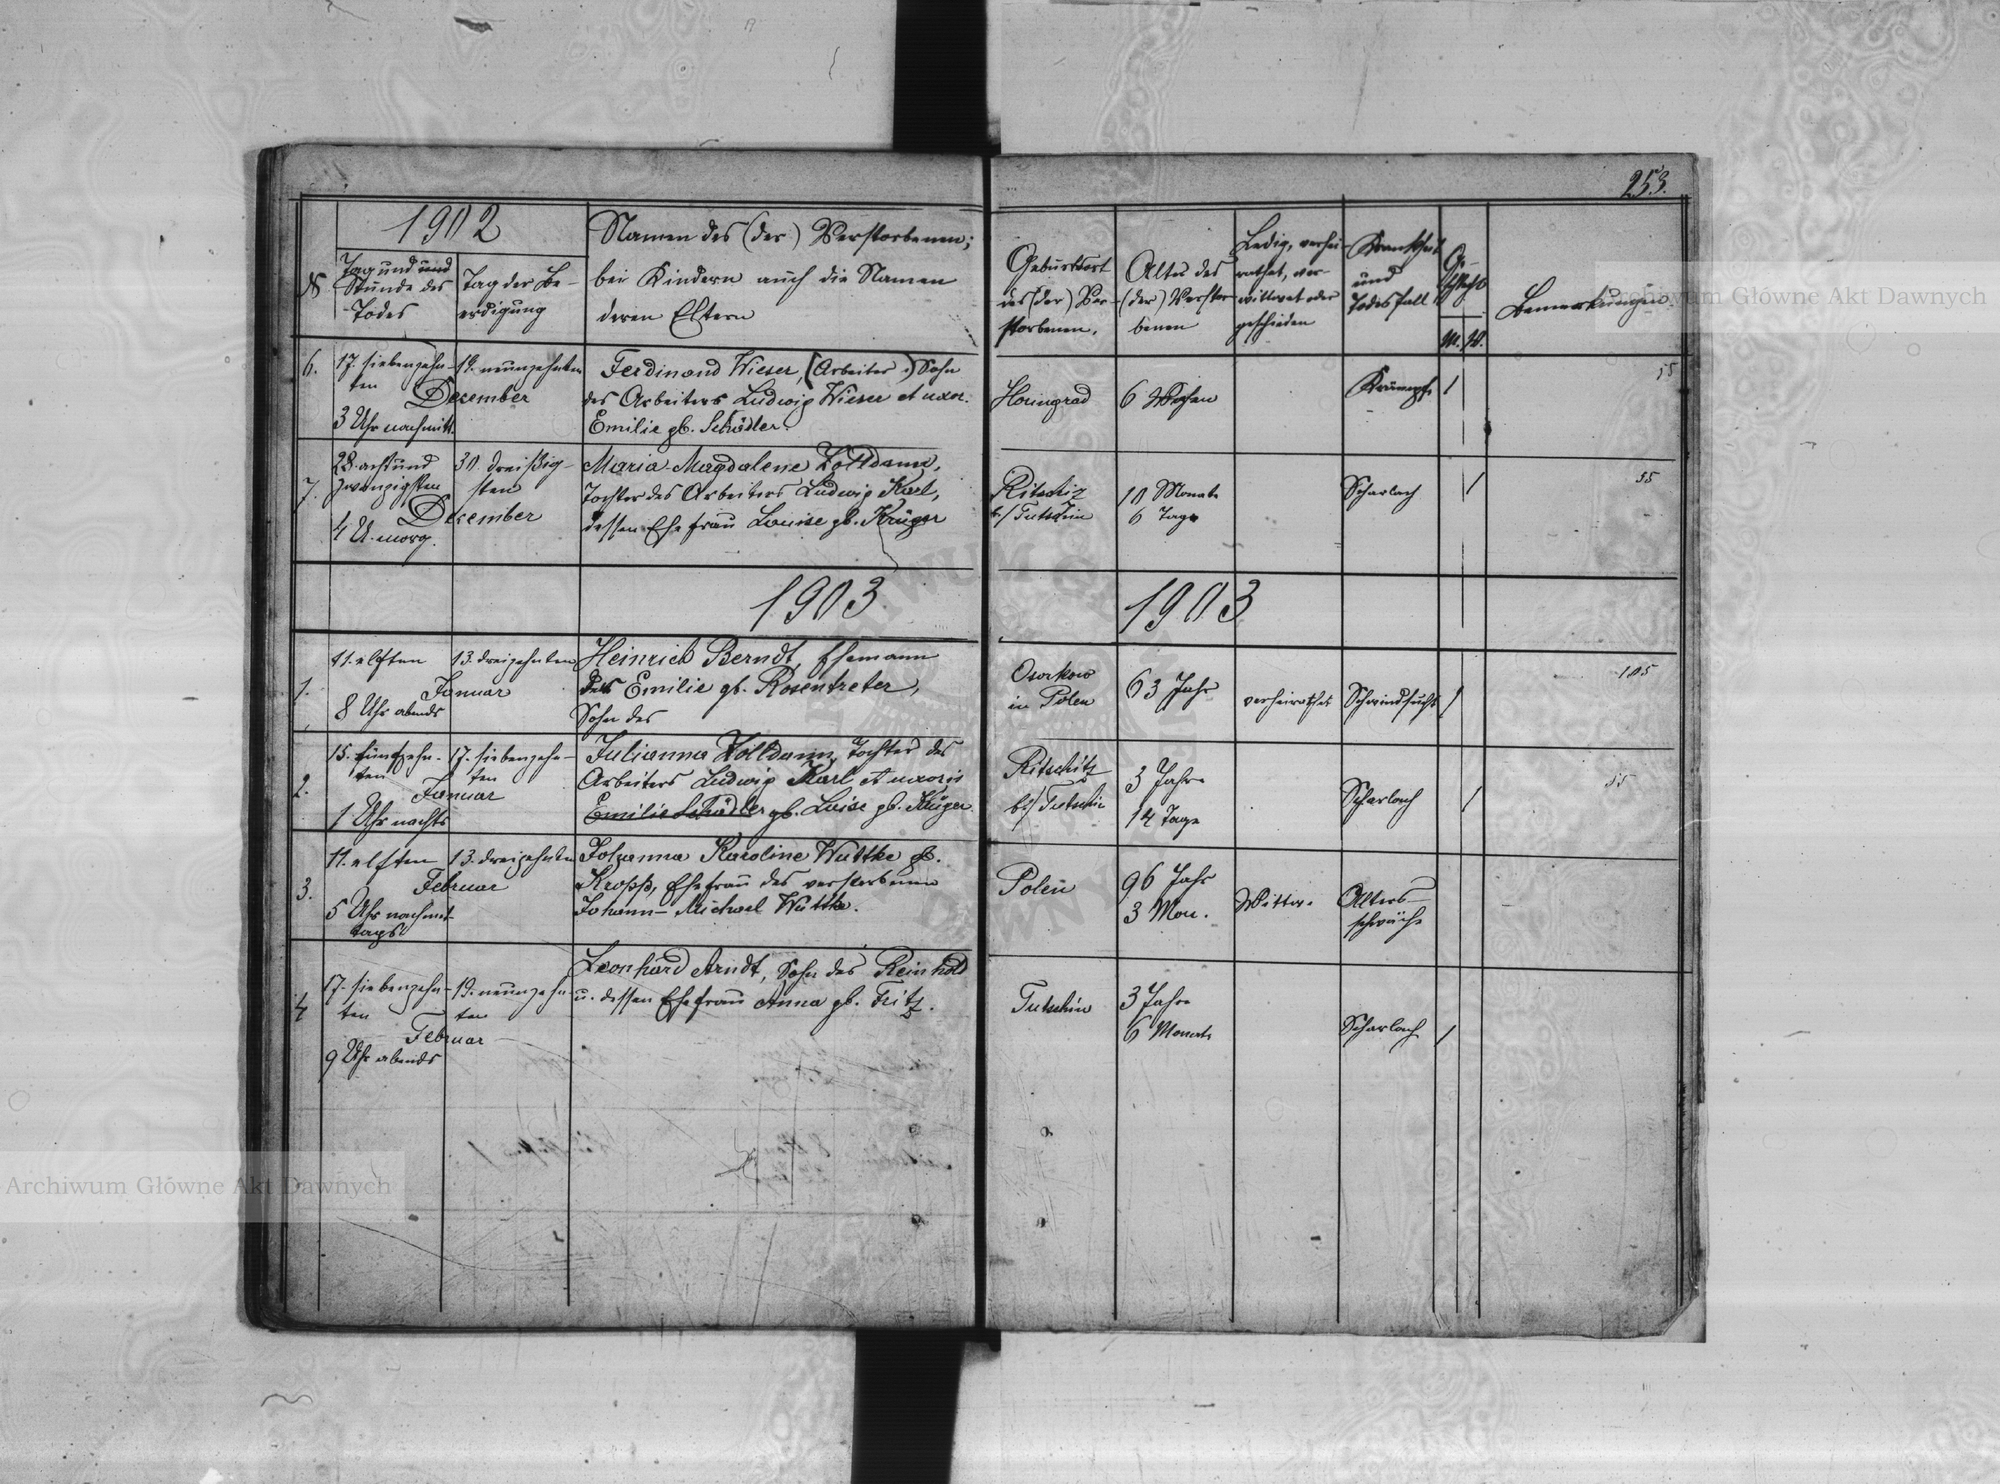 253.
1902
Namen des (der) Verstorbenen;
bei Kindern auch die Namen
deren Eltern
№
Tag und und
Stunde des
Todes
Tag der Be-
erdigung
Geburtsort
des (der) Ver-
storbenen.
Alter des
(der) Verstor-
benen
Ledig, verhei-
rathet, ver-
wittwet oder
geschieden
Krankheit
und
Todesfall
Ge-
schlecht
M. W.
Bemerkungen.
6.
17. siebenzehn-
ten
December
3 Uhr nachmitt.
19. neunzehnten
Ferdinand Wieser, (Arbeiter.) Sohn
des Arbeiters Ludwig Wieser et uxor.
Emilie gb. Schädler.
6 Wochen
Krämpfe
1
55
7.
28. acht und
zwanzigsten
December
4 U. morg.
30. dreißig-
sten
Maria-Magdalene Zolldann,
Tochter des Arbeiters Ludwig Karl,
dessen Ehefrau Louise gb. Krüger
b/ Tutschin
10 Monate
6 Tage
Scharlach
1
55
1903.
1903
1.
11. elften
Januar
8 Uhr abends
13. dreizehnten
Heinrich Berndt, Ehemann
der Emilie gb. Rosentreter,
Sohn des
Osorkow
in Polen
63 Jahr
verheirathet
Schwindsucht
1
105
2.
15. fünfzehn-
ten
Januar
1 Uhr nachts
17. siebenzehn-
ten
Julianna Zolldann, Tochter des
Arbeiters Ludwig Karl et uxoris
Emilie Schädler gb. Luise gb. Krüger.
Ritschitz
bei/ Tutschin
3 Jahre
14 Tage
Scharlach
1
55
3.
11. elften
Februar
5 Uhr nachmit-
tags
13. dreizehnten
Johanna Karoline Wuttke gb.
Kropp, Ehefrau des verstorbenen
Johann-Michael Wuttke.
Polen
96 Jahr
3 Mon.
Wittwe
Alters-
schwäche
4
17. siebenzehn-
ten
Februar
9 Uhr abends
19. neunzehn-
ten
Leonhard Arndt, Sohn des Reinhold
u. dessen Ehefrau Anna gb. Fritz.
Tutschin
3 Jahre
6 Monate
Scharlach
1
Archiwum Główne Akt Dawnych
Archiwum Główne Akt Dawnych